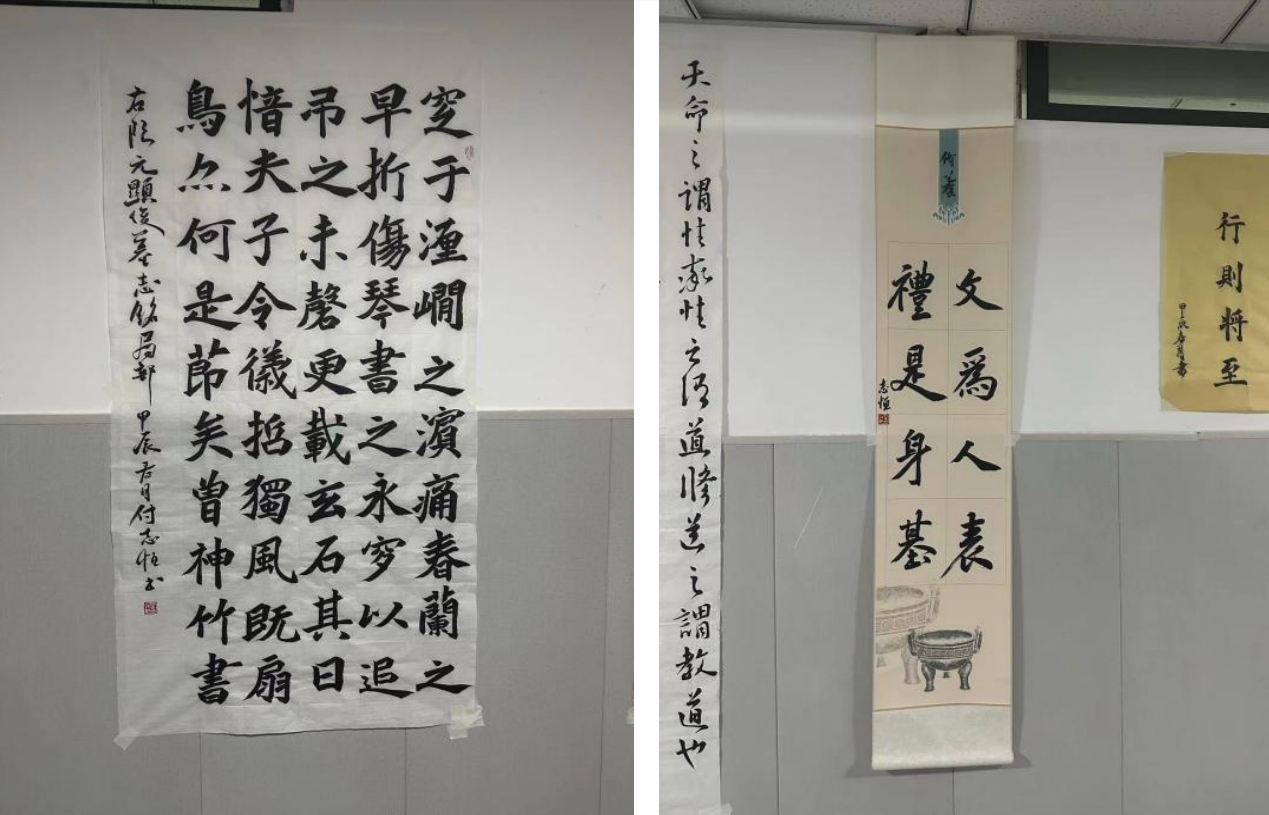 窆于瀍㵎之濵痛春蘭之
早折傷琴書之永穸以追
吊之未罄更載玄石其日
愔夫子令儀括獨風既扇
鳥尒何是莭矣曽神竹書
右臨元顯俊墓志銘局部 甲辰春月付志恒书
修養
文爲人表
禮是身基
志恒
天命之謂性率性之謂道脩道之謂教道也
行則將至
甲辰春月書